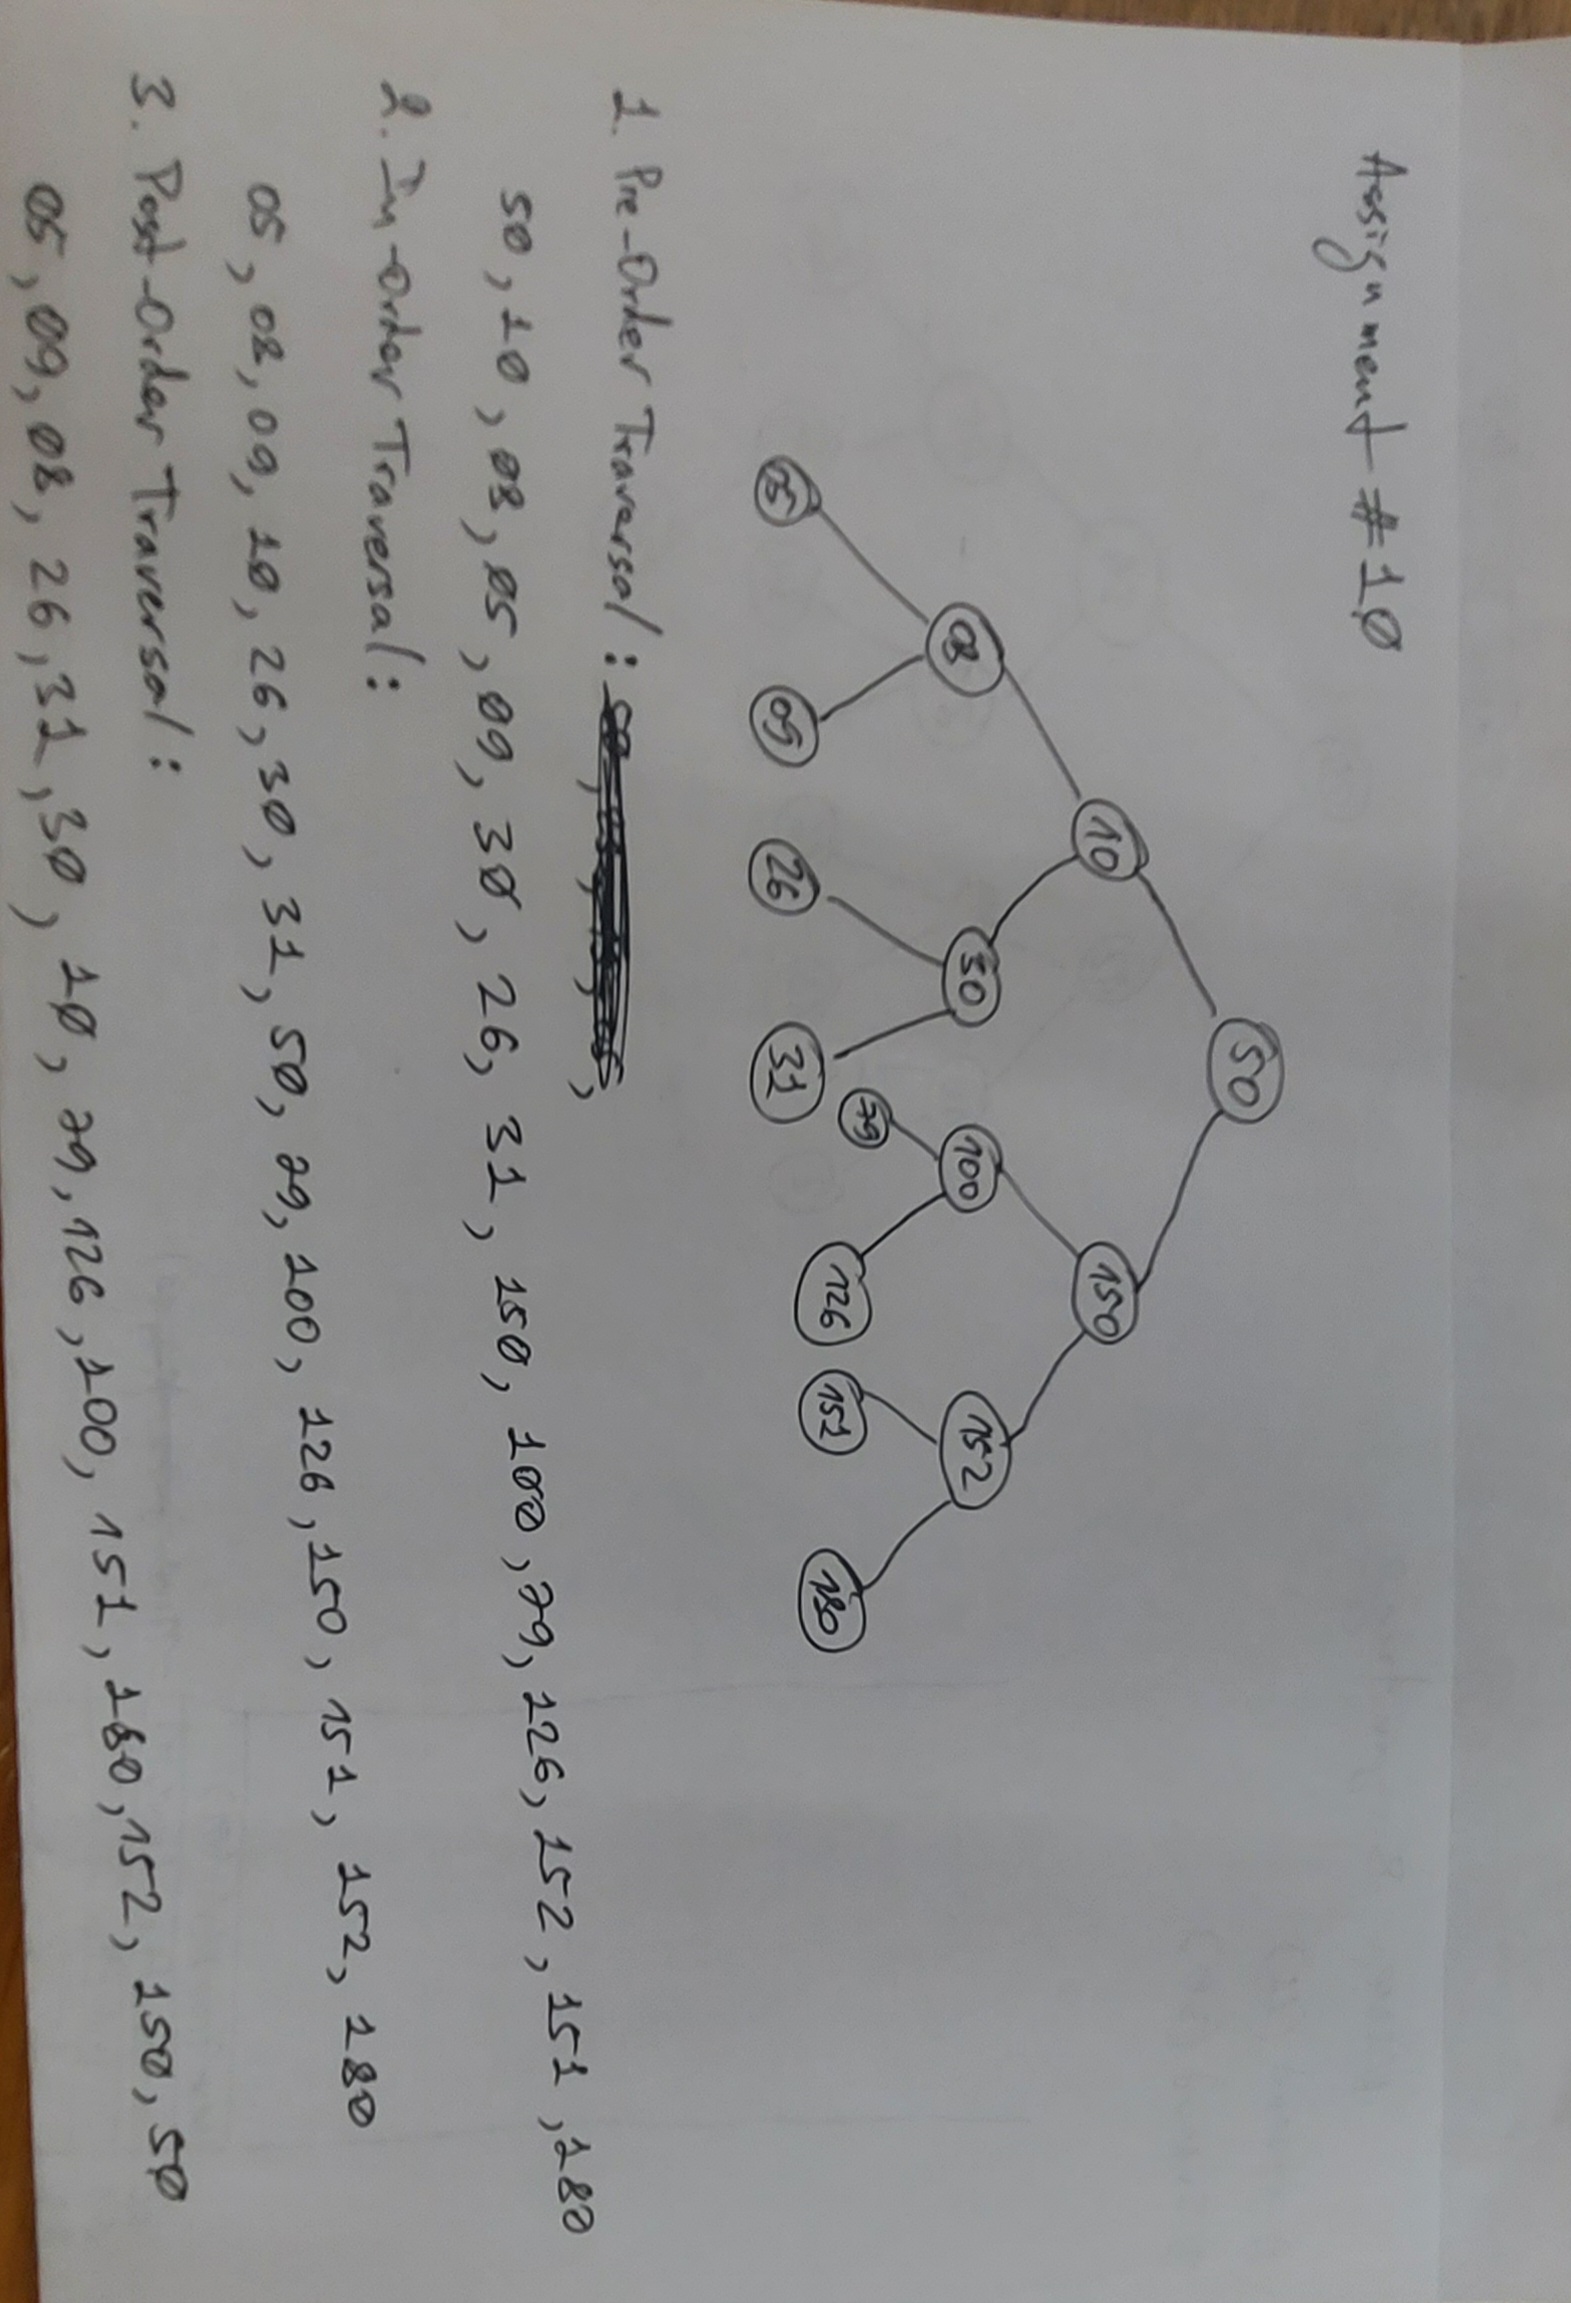 Assignment #10
50
10 150
08 30 100 152
79
126 151 180
05 09 26 31
1. Pre-Order Traversal:
50, 10, 08, 05, 09, 30, 26, 31, 150, 100, 79, 126, 152, 151, 180
2. In-Order Traversal:
05, 08, 09, 10, 26, 30, 31, 50, 79, 100, 126, 150, 151, 152, 180
3. Post-Order Traversal:
05, 09, 08, 26, 31, 30, 10, 79, 126, 100, 151, 180, 152, 150, 50